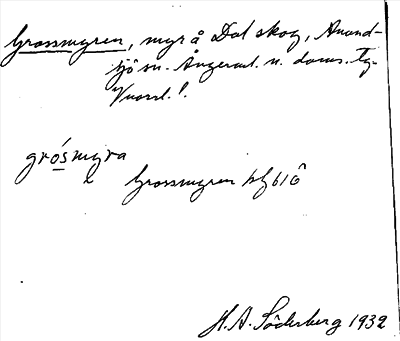 Grossmyren, myr å Dal skog, Anund-
sjö sn. Ångerml. n. doms. tg.
Vnorrl.
grósmyra
Grossmyren
H. A. Söderberg 1932